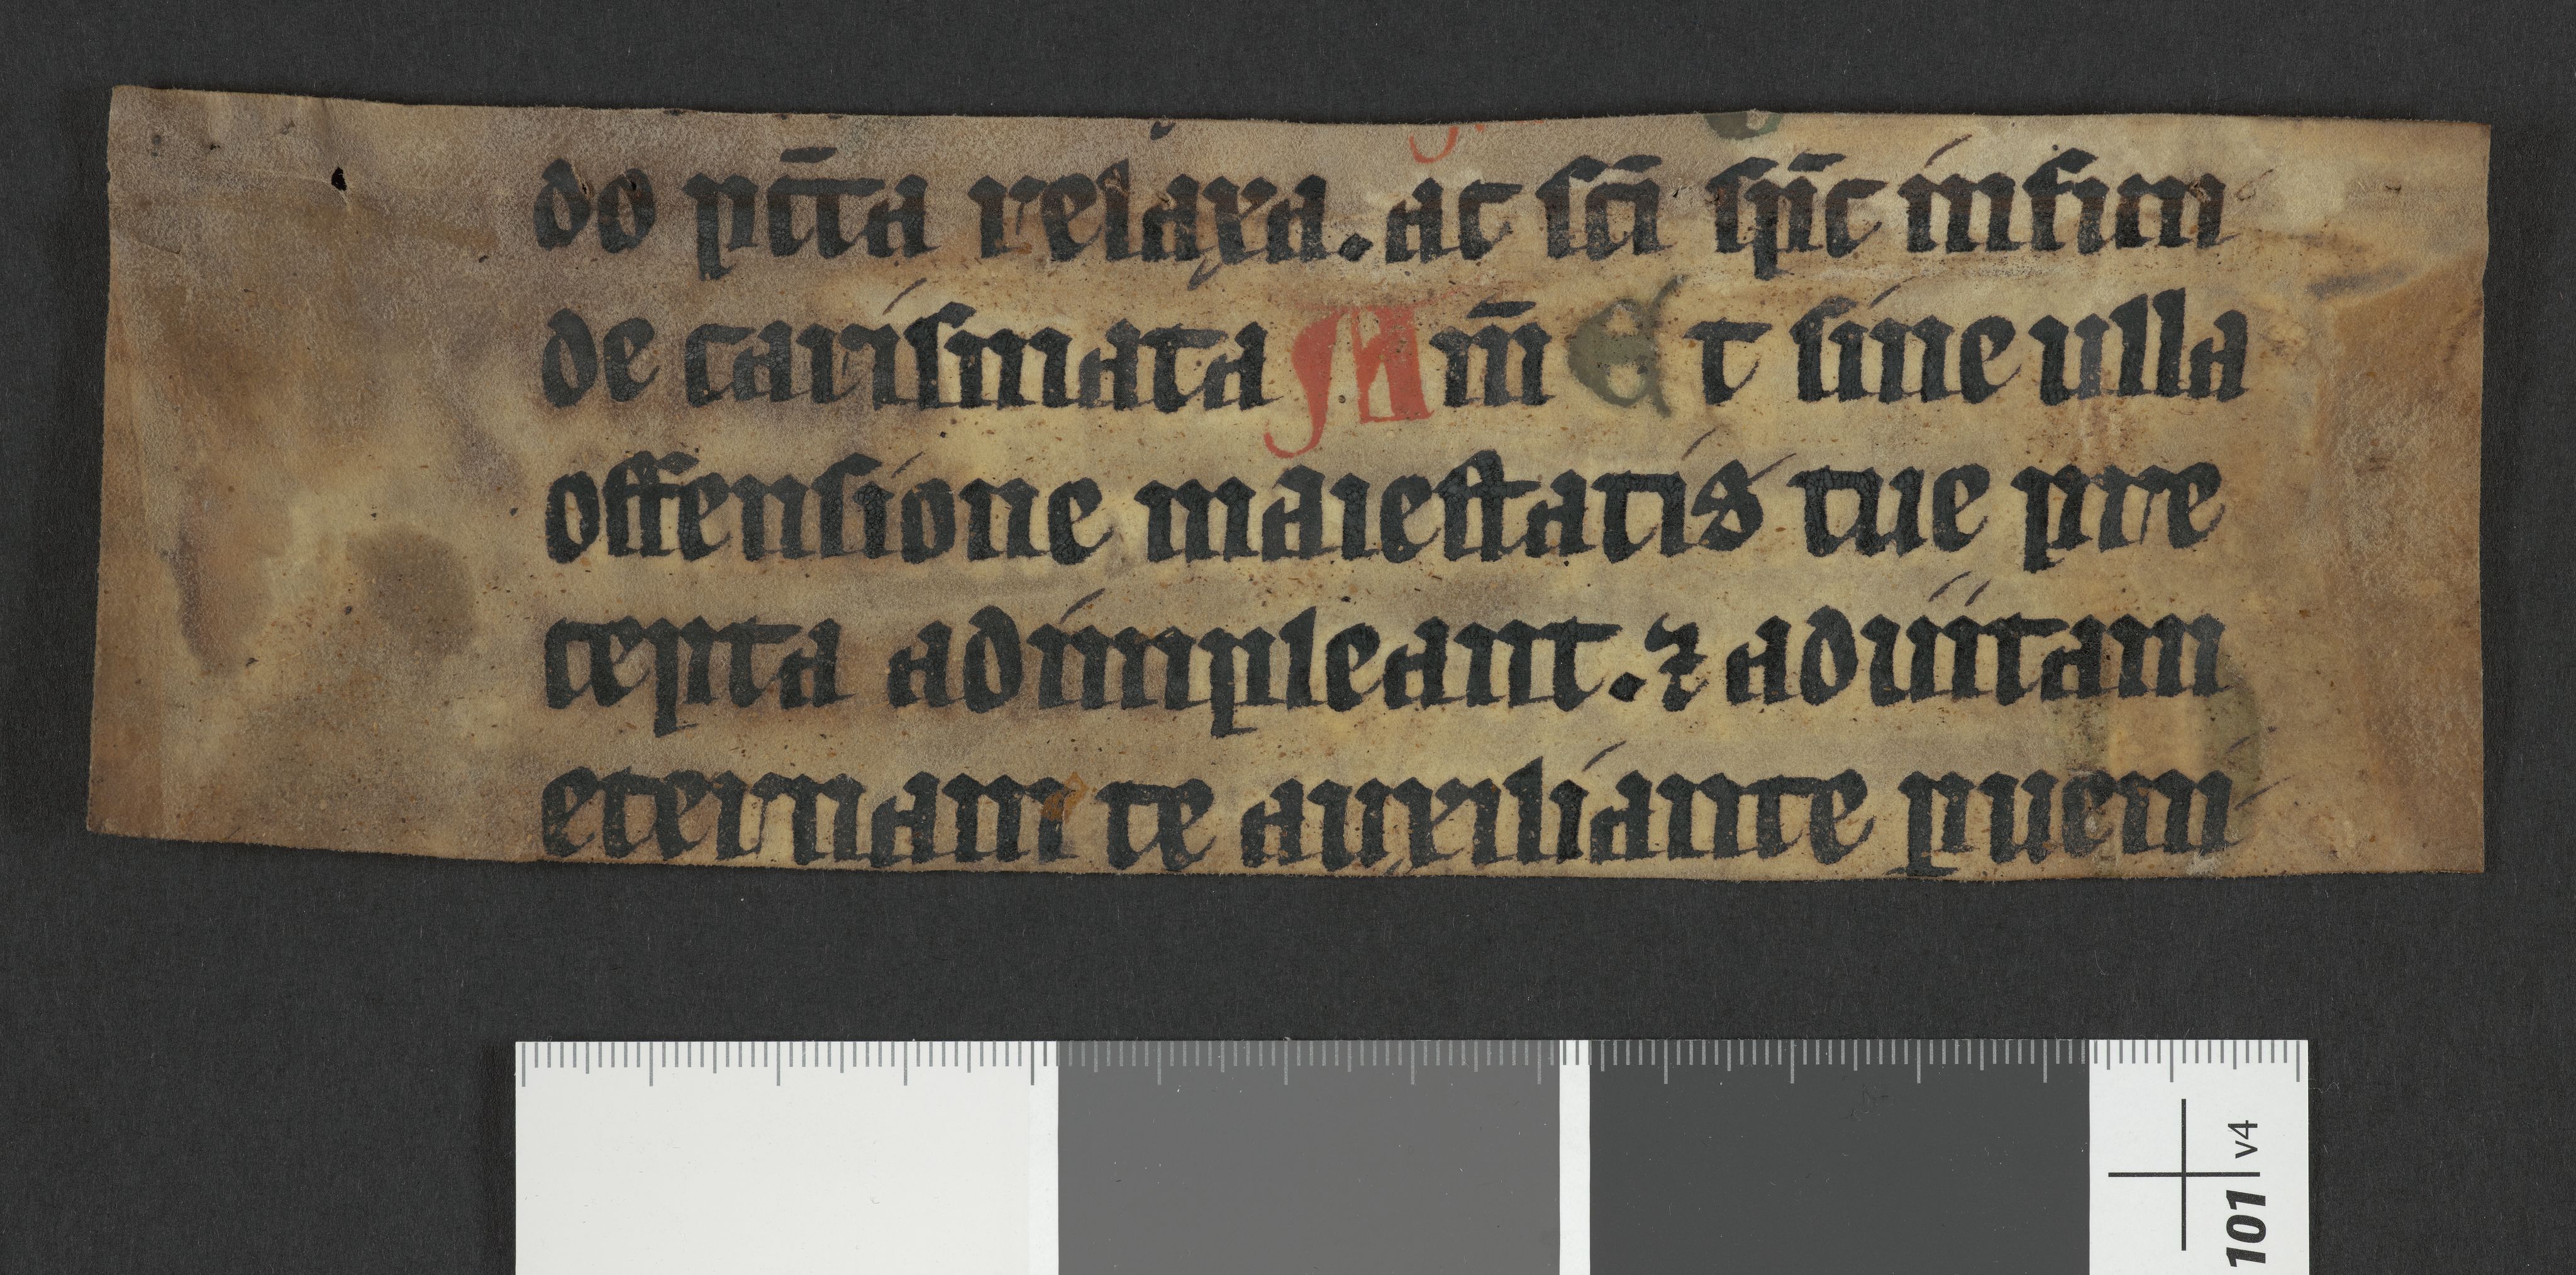 do pc̄ta relaxa. at sc̄i sp̄c infun
de carismata Am̄ Et sine ulla
offensione maiestatis tue pre
cepta adimpleant. ⁊ aduitam
eternam te auxiliante pueni
101 v4